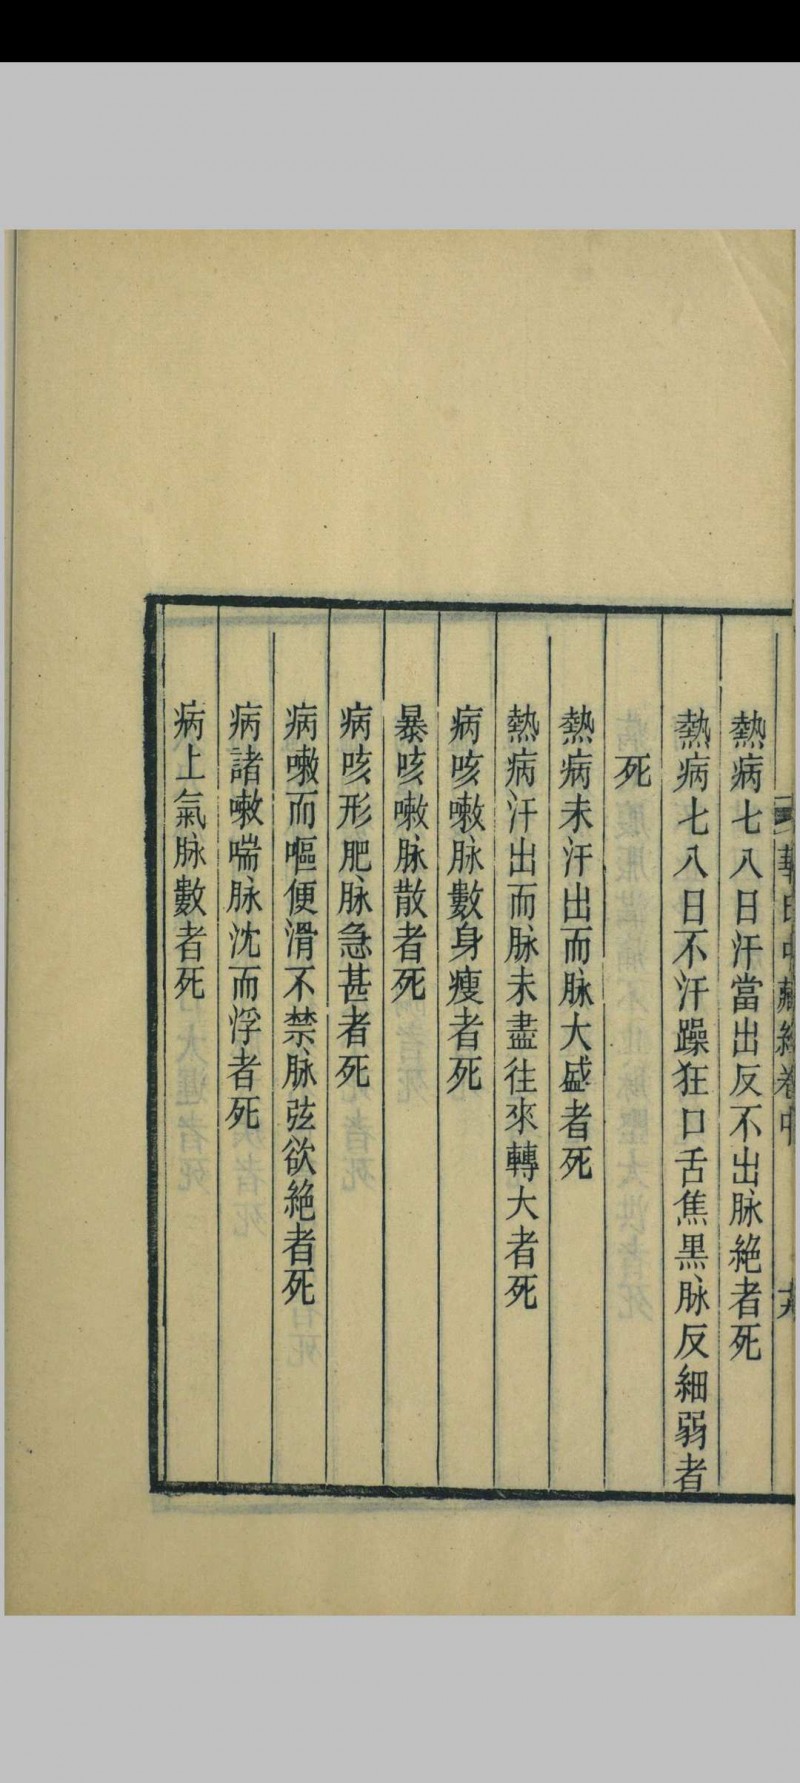 華氏中藏經卷中
熱病七八日汗當出反不出脉絕者死
熱病七八日不汗躁狂口舌焦黒脉反細弱者
死
熱病未汗出而脉大盛者死
熱病汗出而脉未盡往來轉大者死
病咳嗽脉數身瘦者死
暴咳嗽脉散者死
病咳形肥脉急甚者死
病嗽而嘔便滑不禁脉弦欲絕者死
病諸嗽喘脉沈而浮者死
病上氣脉數者死